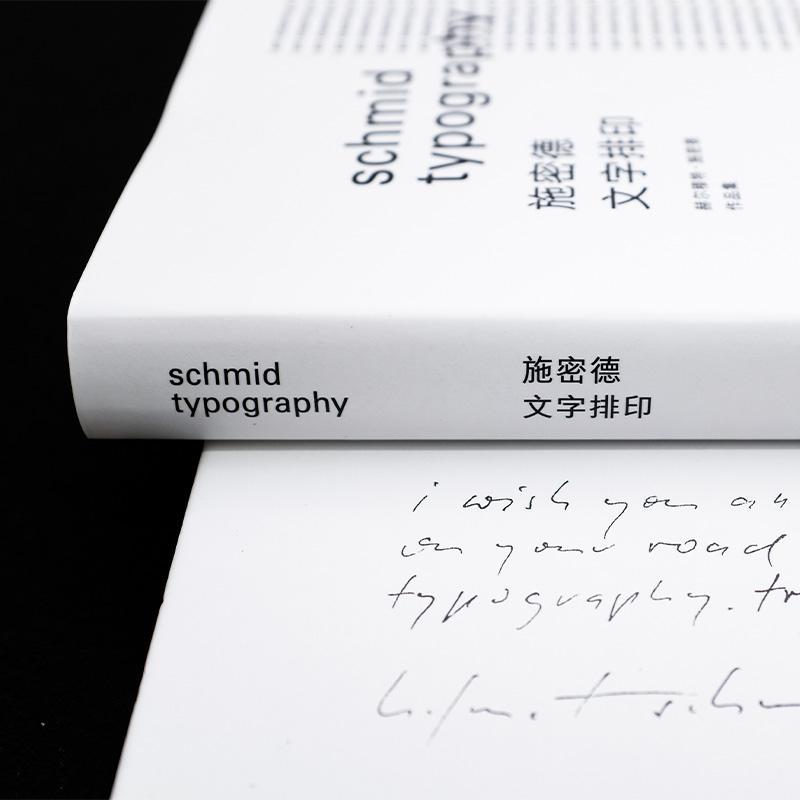 schmid
typography
施密德
文字排印
赫尔穆特·施密德
作品集
schmid
typography
施密德
文字排印
i wish you
on your road
typography.